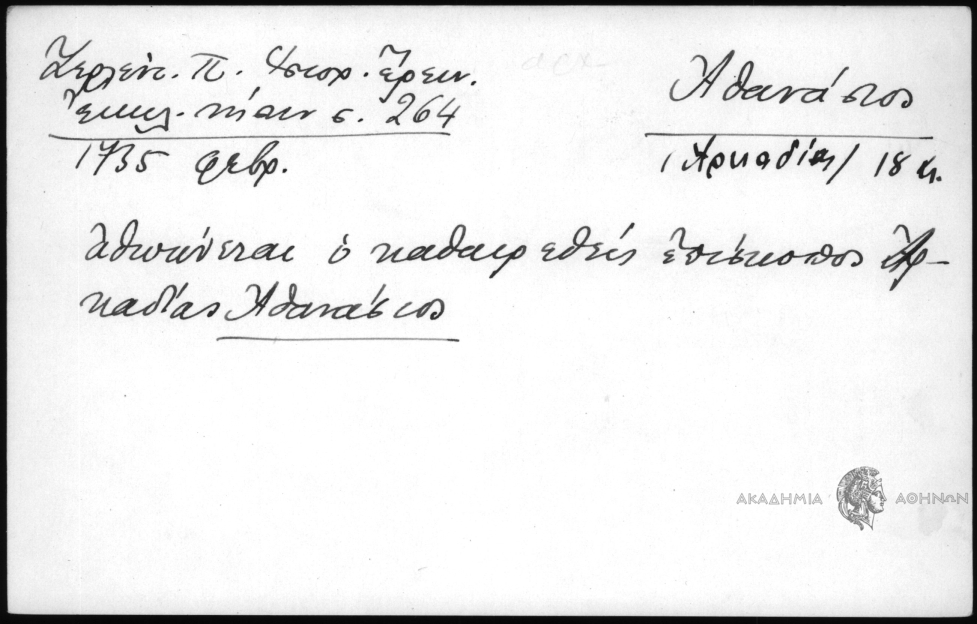 Ζερλέντ. Π. Ἱστορ. Ἔρευν.
Ἐκκλ. νήσων σ. 264
1735 φεβρ.
Ἀθανάσιος
(Ἀρκαδίας) 18 αἰ.
ἀθωώνεται ὁ καθαιρεθείς ἐπίσκοπος Ἀρ-
καδίας Ἀθανάσιος
ΑΚΑΔΗΜΙΑ ΑΘΗΝΩΝ